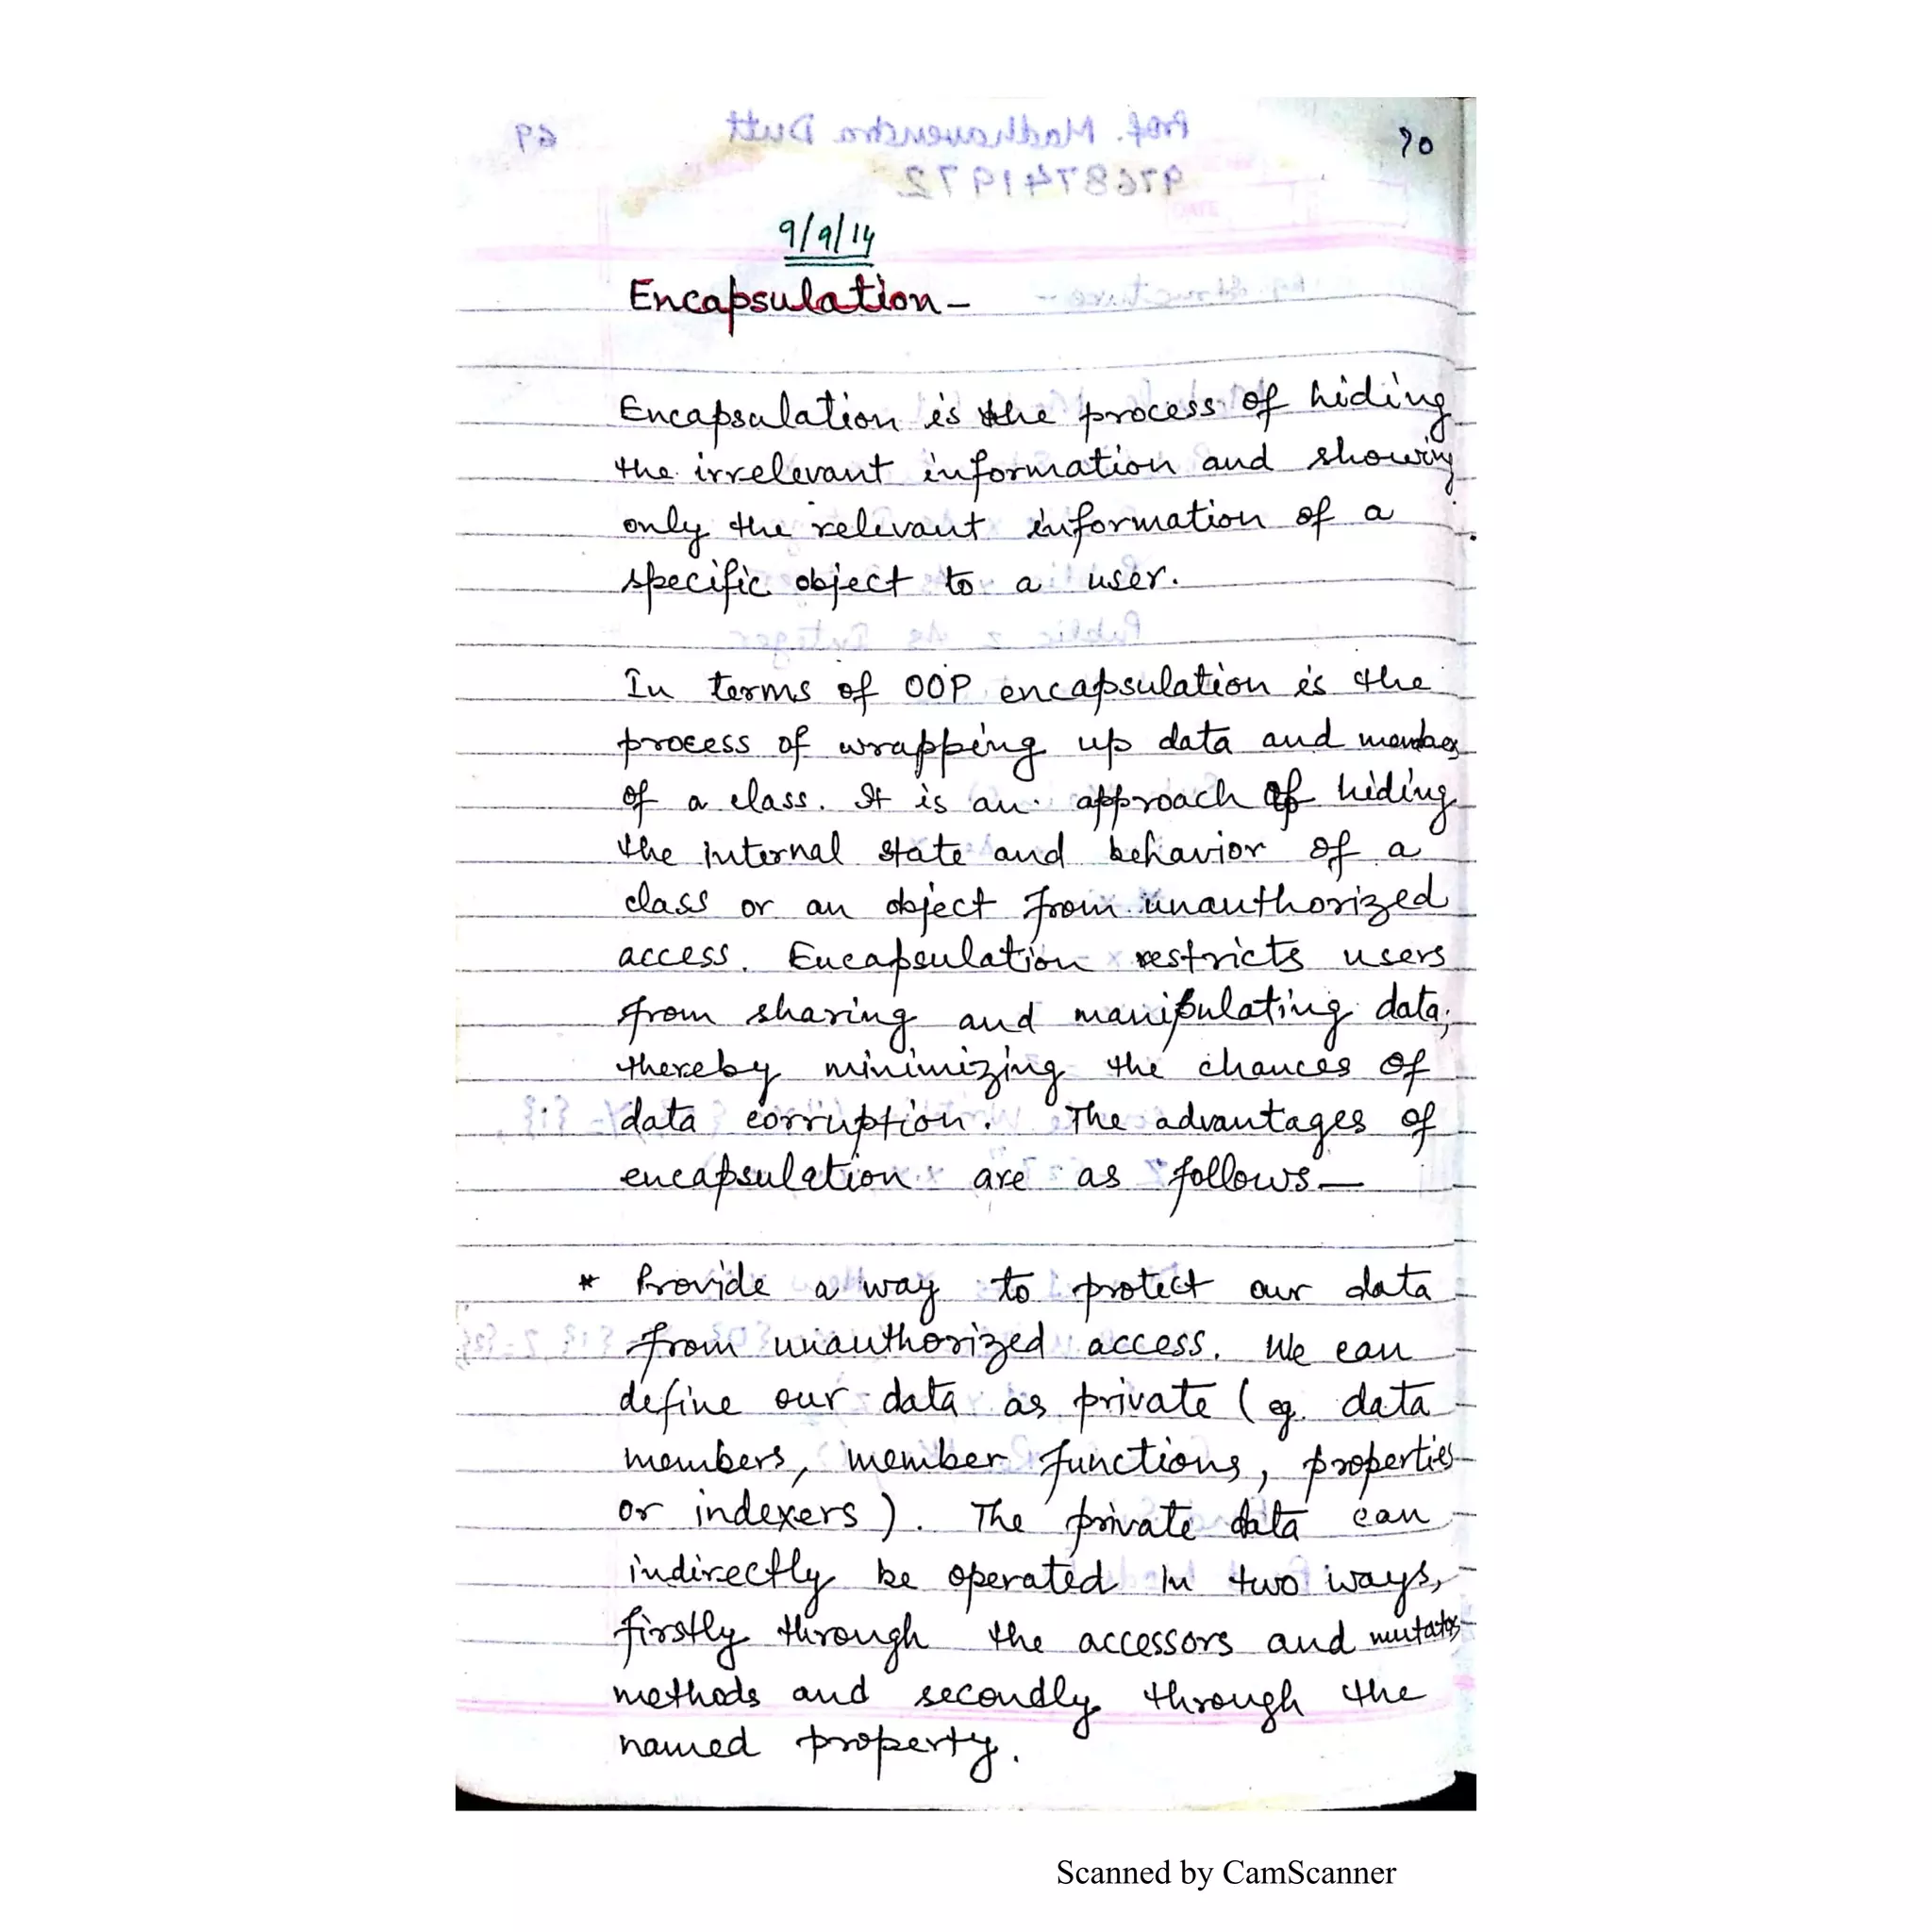 70
9/9/14
Encapsulation -
Encapsulation is the process of hiding
the irrelevant information and showing
only the relevant information of a
specific object to a user.
In terms of OOP encapsulation is the
process of wrapping up data and members
of a class. It is an approach of hiding
the internal state and behavior of a
class or an object from unauthorized
access. Encapsulation restricts users
from sharing and manipulating data,
thereby minimizing the chances of
data corruption. The advantages of
encapsulation are as follows —
* Provide a way to protect our data
from unauthorized access. We can
define our data as private (eg. data
members, member functions, properties
or indexers). The private data can
indirectly be operated in two ways,
firstly through the accessors and mutators
methods and secondly through the
named property.
Scanned by CamScanner